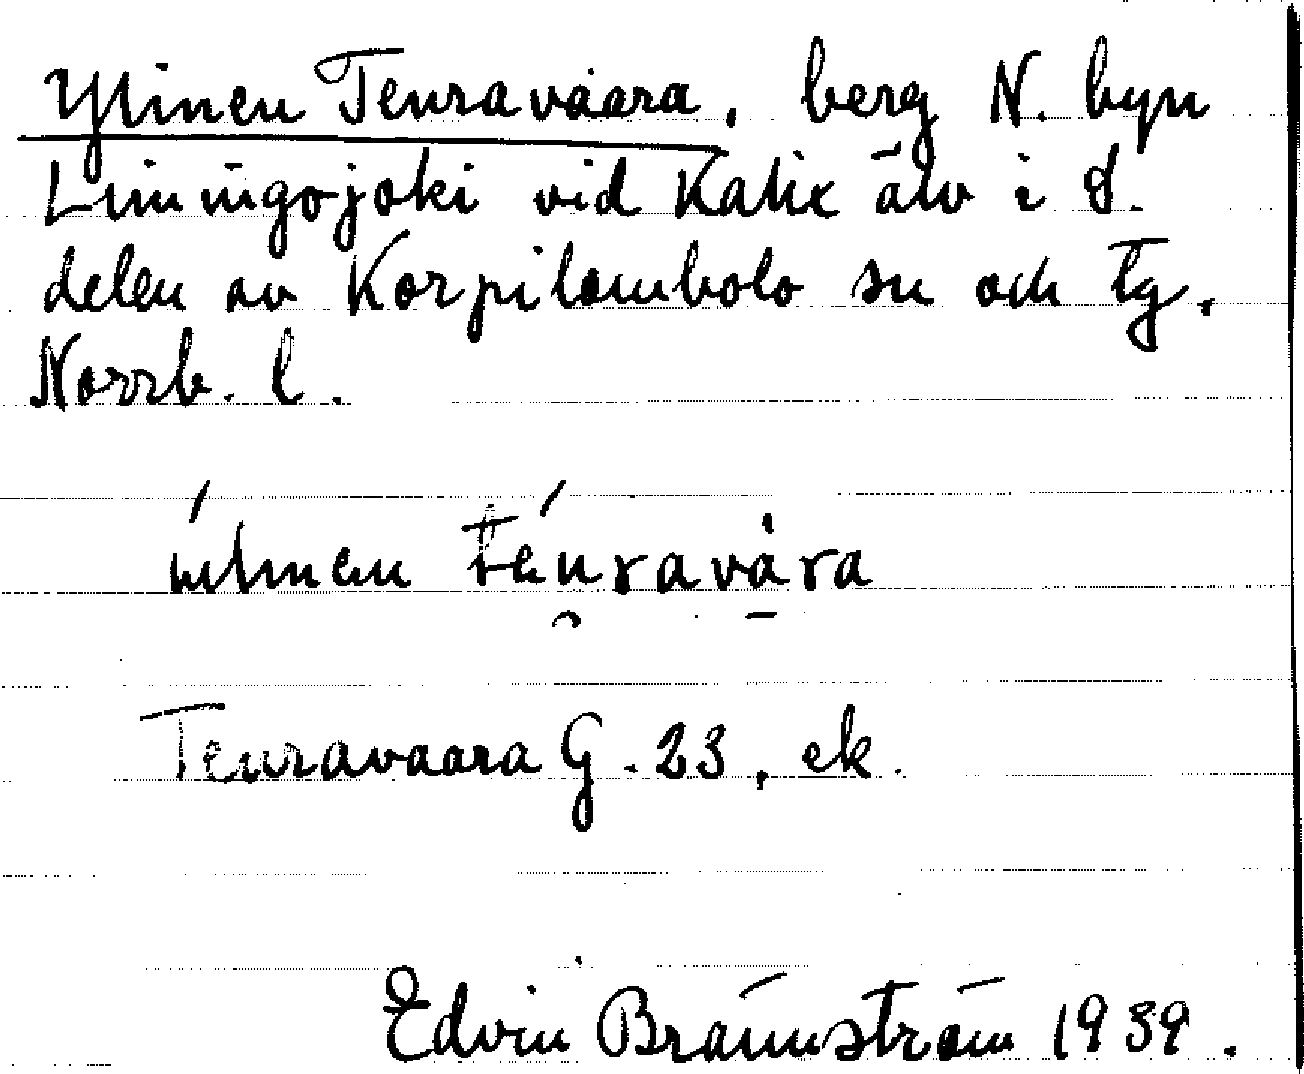 Ylinen Teuravaara, berg N. byn
Liminigojoki vid Kalix älv i S.
delen av Korpilombolo sn och tg.
Norrb. l.
Teuravaara G. 23, ek.
Edvin Brännström 1939.